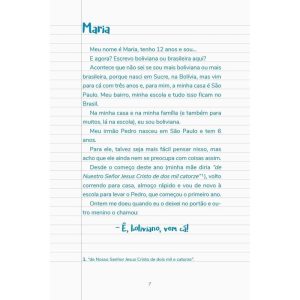 Maria
Meu nome é Maria, tenho 12 anos e sou...
E agora? Escrevo boliviana ou brasileira aqui?
Acontece que não sei se sou mais boliviana ou mais
brasileira, porque nasci em Sucre, na Bolívia, mas vim
para cá com três anos e, para mim, a minha casa é São
Paulo. Meu bairro, minha escola e tudo isso ficam no
Brasil.
Na minha casa e na minha família (e também para
muitos, lá na escola), eu sou boliviana.
Meu irmão Pedro nasceu em São Paulo e tem 6
anos.
Para ele, talvez seja mais fácil pensar nisso, mas
acho que ele ainda nem se preocupa com coisas assim.
Desde o começo deste ano (minha mãe diria "de
Nuestro Señor Jesus Cristo de dos mil catorze"¹), volto
correndo para casa, almoço rápido e vou de novo à
escola para levar o Pedro, que começou o primeiro ano.
Ontem me doeu quando eu o deixei no portão e ou-
tro menino o chamou:
– Ê, boliviano, vem cá!
1. "de Nosso Senhor Jesus Cristo de dois mil e catorze".
7